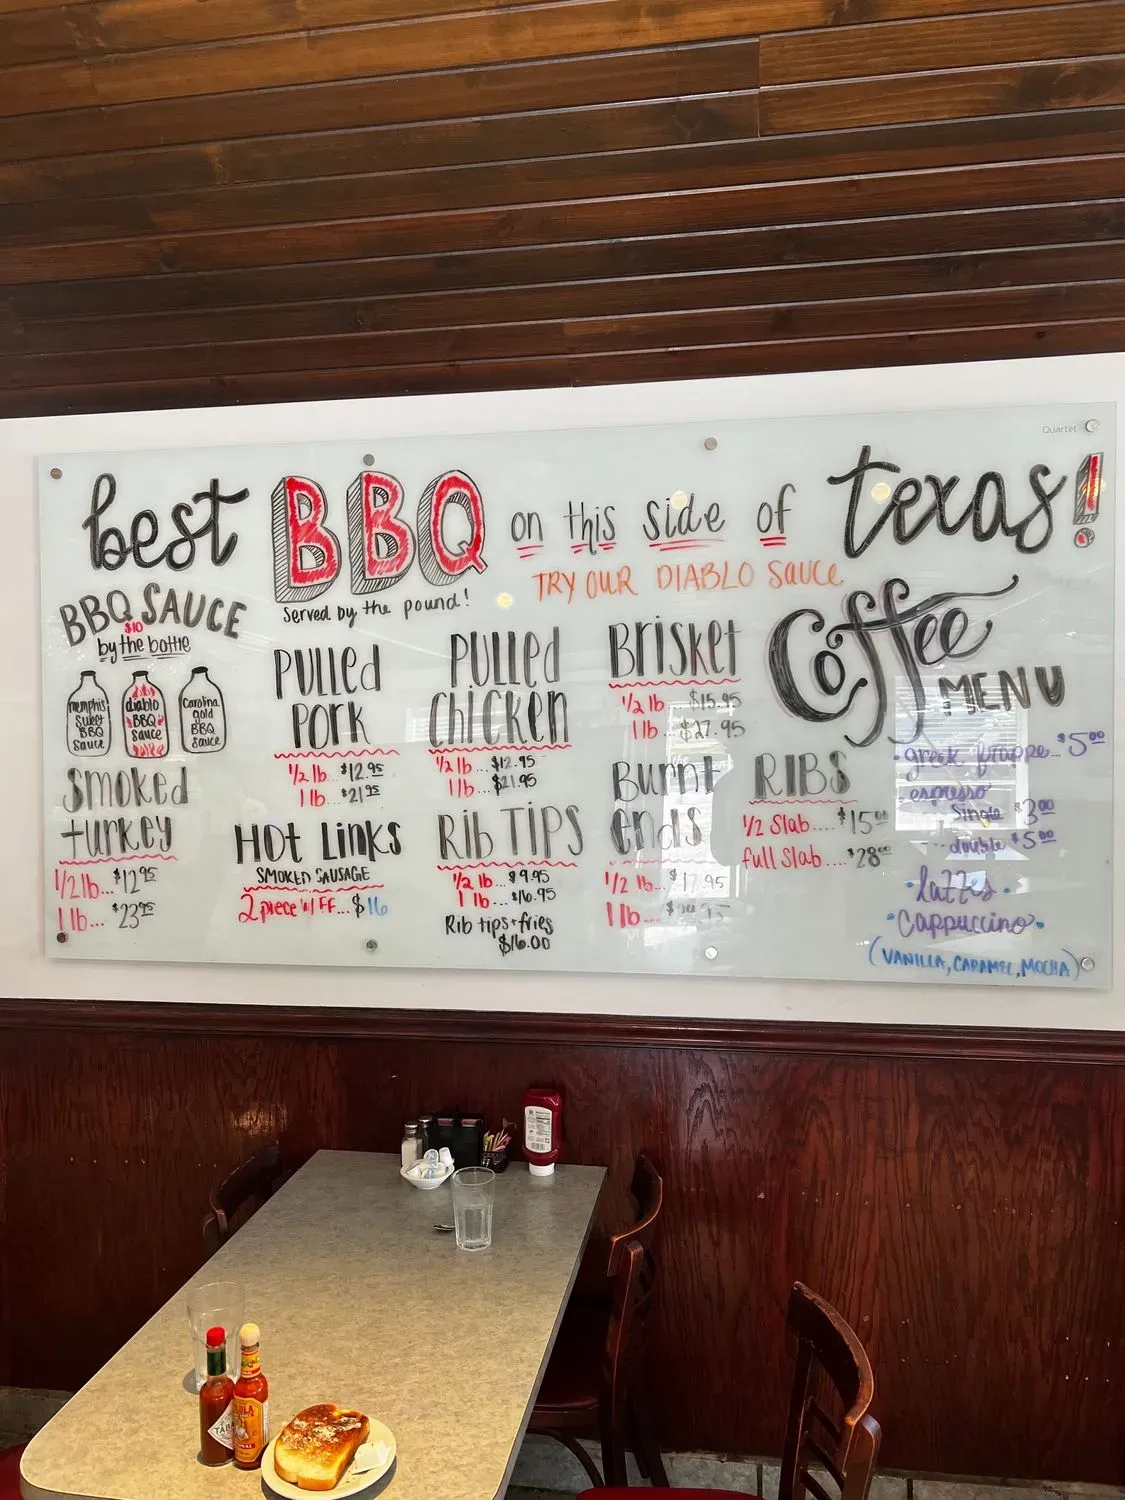 Quartet
best BBQ on this side of texas!
TRY OUR DIABLO SAUCE
Served by the pound!
BBQ SAUCE
$10
by the bottle
memphis sweet BBQ sauce
diablo BBQ sauce
Carolina gold BBQ sauce
Smoked
turkey
1/2 lb... $12.95
1 lb... $23.95
PULLED
PORK
1/2 lb... $12.95
1 lb... $21.95
HOT LINKS
SMOKED SAUSAGE
2 piece w/ FF... $16
PULLED
CHICKEN
1/2 lb... $12.95
1 lb... $21.95
Rib TIPS
1/2 lb... $9.95
1 lb... $16.95
Rib tips + fries
$16.00
BRISKET
1/2 lb... $15.95
1 lb... $27.95
Burnt
Ends
1/2 lb...
1 lb...
RIBS
1/2 Slab.... $15.00
full Slab... $28.00
Coffee
MENU
• greek frappe... $5.00
• espresso
single $3.00
double $5.00
• lattes
• Cappuccino •
(VANILLA, CARAMEL, MOCHA)